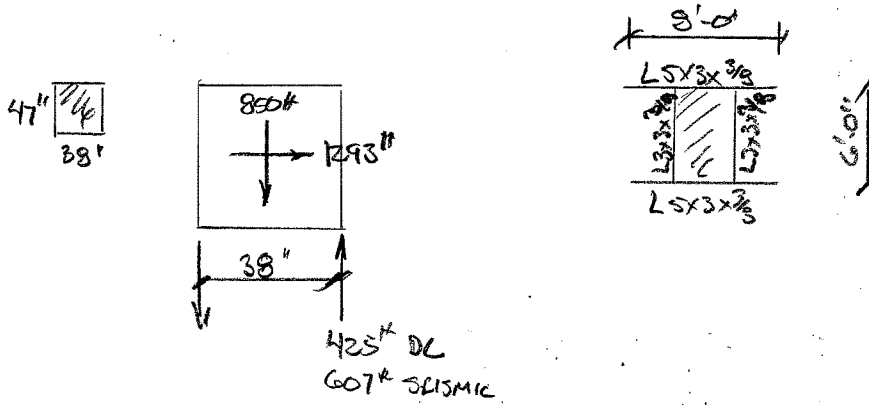 47"
38"
850#
1293#
38"
425# DL
607# SEISMIC
8'-0"
L5x3x3/8
L3x3x3/8
L3x3x3/8
L5x3x3/8
6'-0"